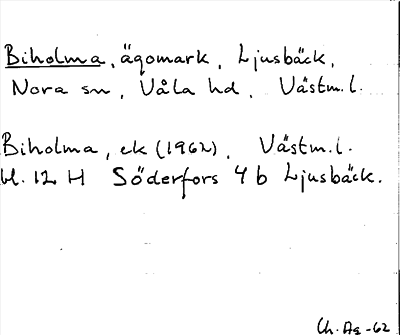 Biholma, ägomark, Ljusbäck,
Nora sn, Våla hd, Västm.l.
Biholma, ek (1962), Västm.l.
bl. 12 H Söderfors 4 b Ljusbäck.
Ch. Ag -62